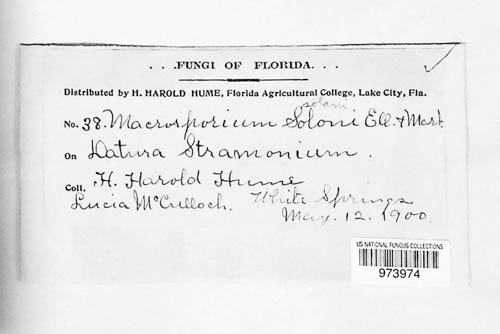 . . .FUNGI OF FLORIDA. . .
Distributed by H. HAROLD HUME, Florida Agricultural College, Lake City, Fla.
solani
No. 38. Macrosporium Soloni Ell. & Mart.
On Datura Stramonium.
Coll. H. Harold Hume
Lucia McCulloch. White Springs
May. 12. 1900.
US NATIONAL FUNGUS COLLECTIONS
973974